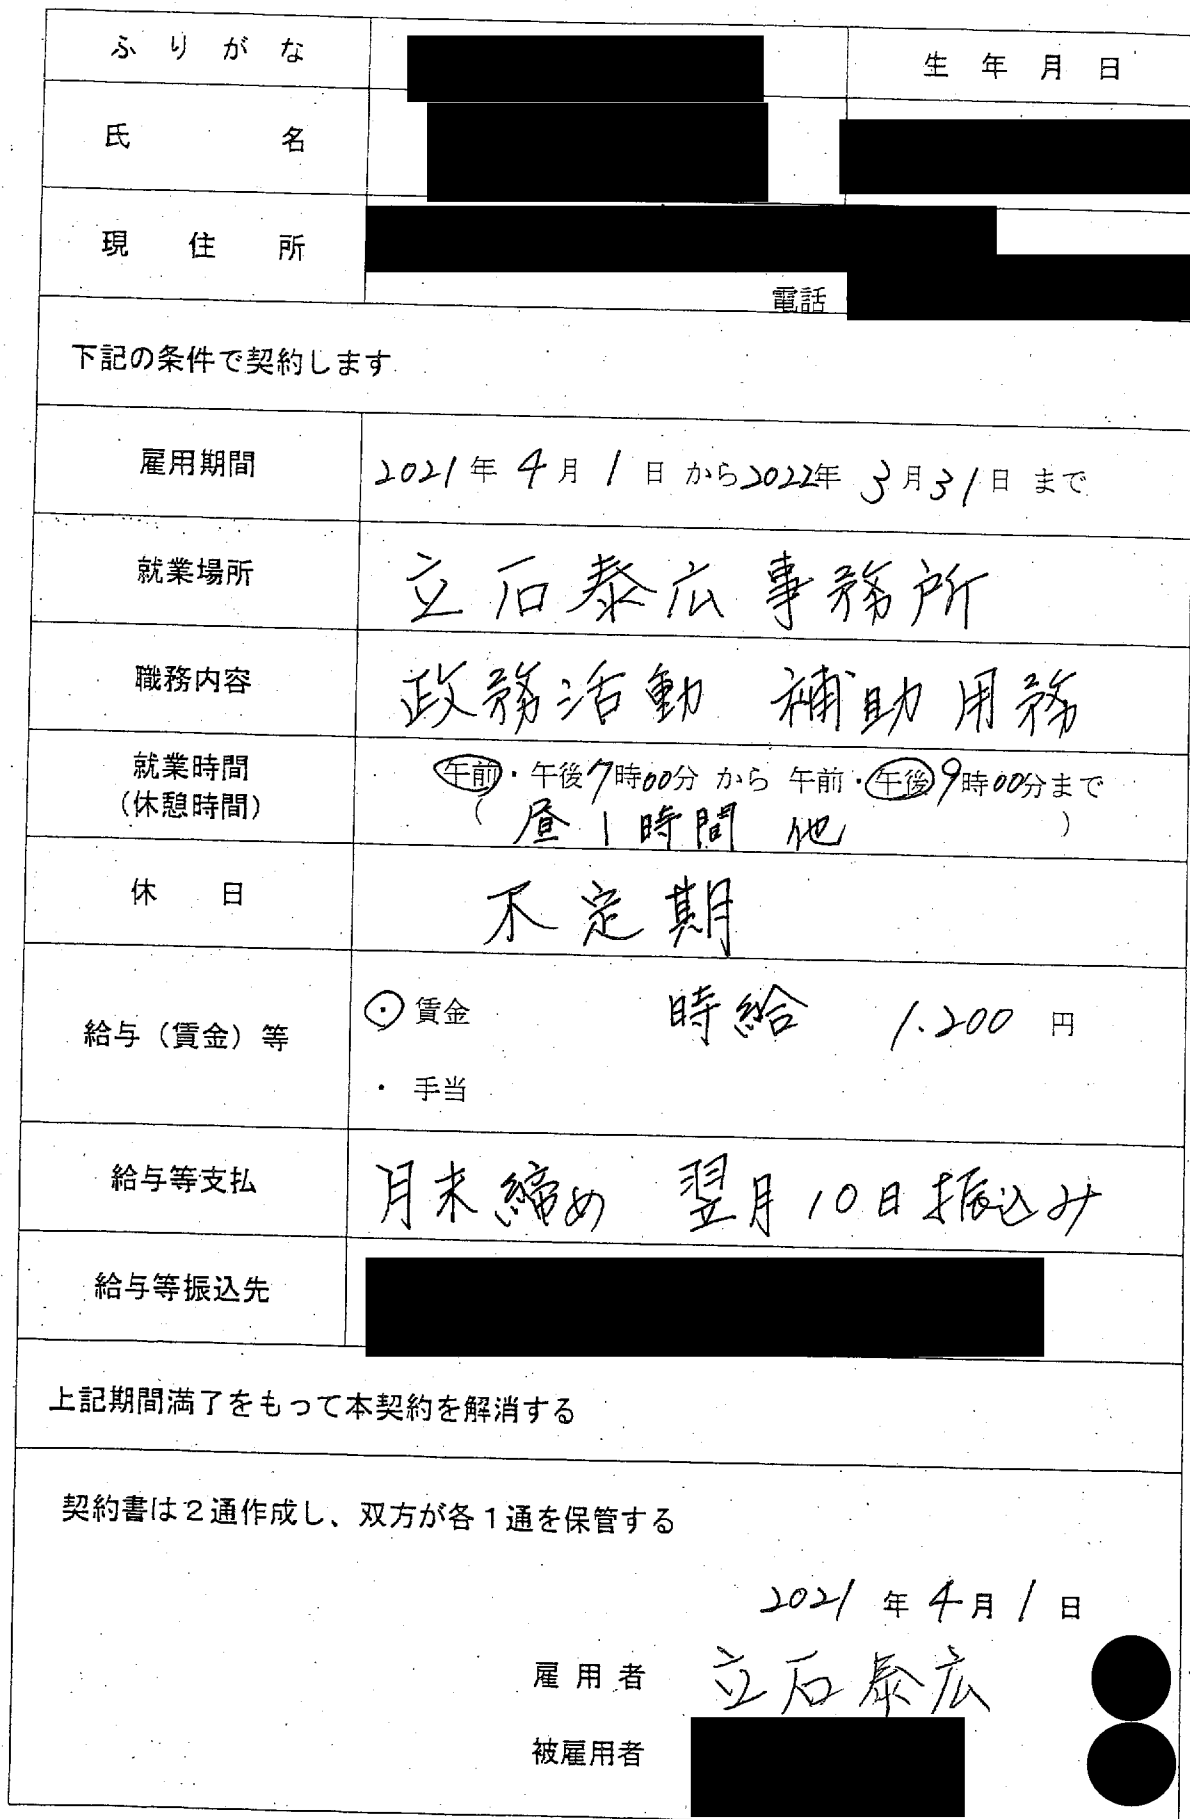 ふりがな
生年月日
氏名
現住所
電話
下記の条件で契約します
雇用期間 2021年4月1日から2022年3月31日まで
就業場所 立石泰広事務所
職務内容 政務活動 補助用務
就業時間 午前・午後7時00分から午前・午後9時00分まで
(休憩時間) (昼1時間 他)
休日 不定期
給与(賃金)等 ・賃金 時給 1.200円
・手当
給与等支払 月末締め 翌月10日振込み
給与等振込先
上記期間満了をもって本契約を解消する
契約書は2通作成し、双方が各1通を保管する
2021年4月1日
雇用者 立石泰広
被雇用者